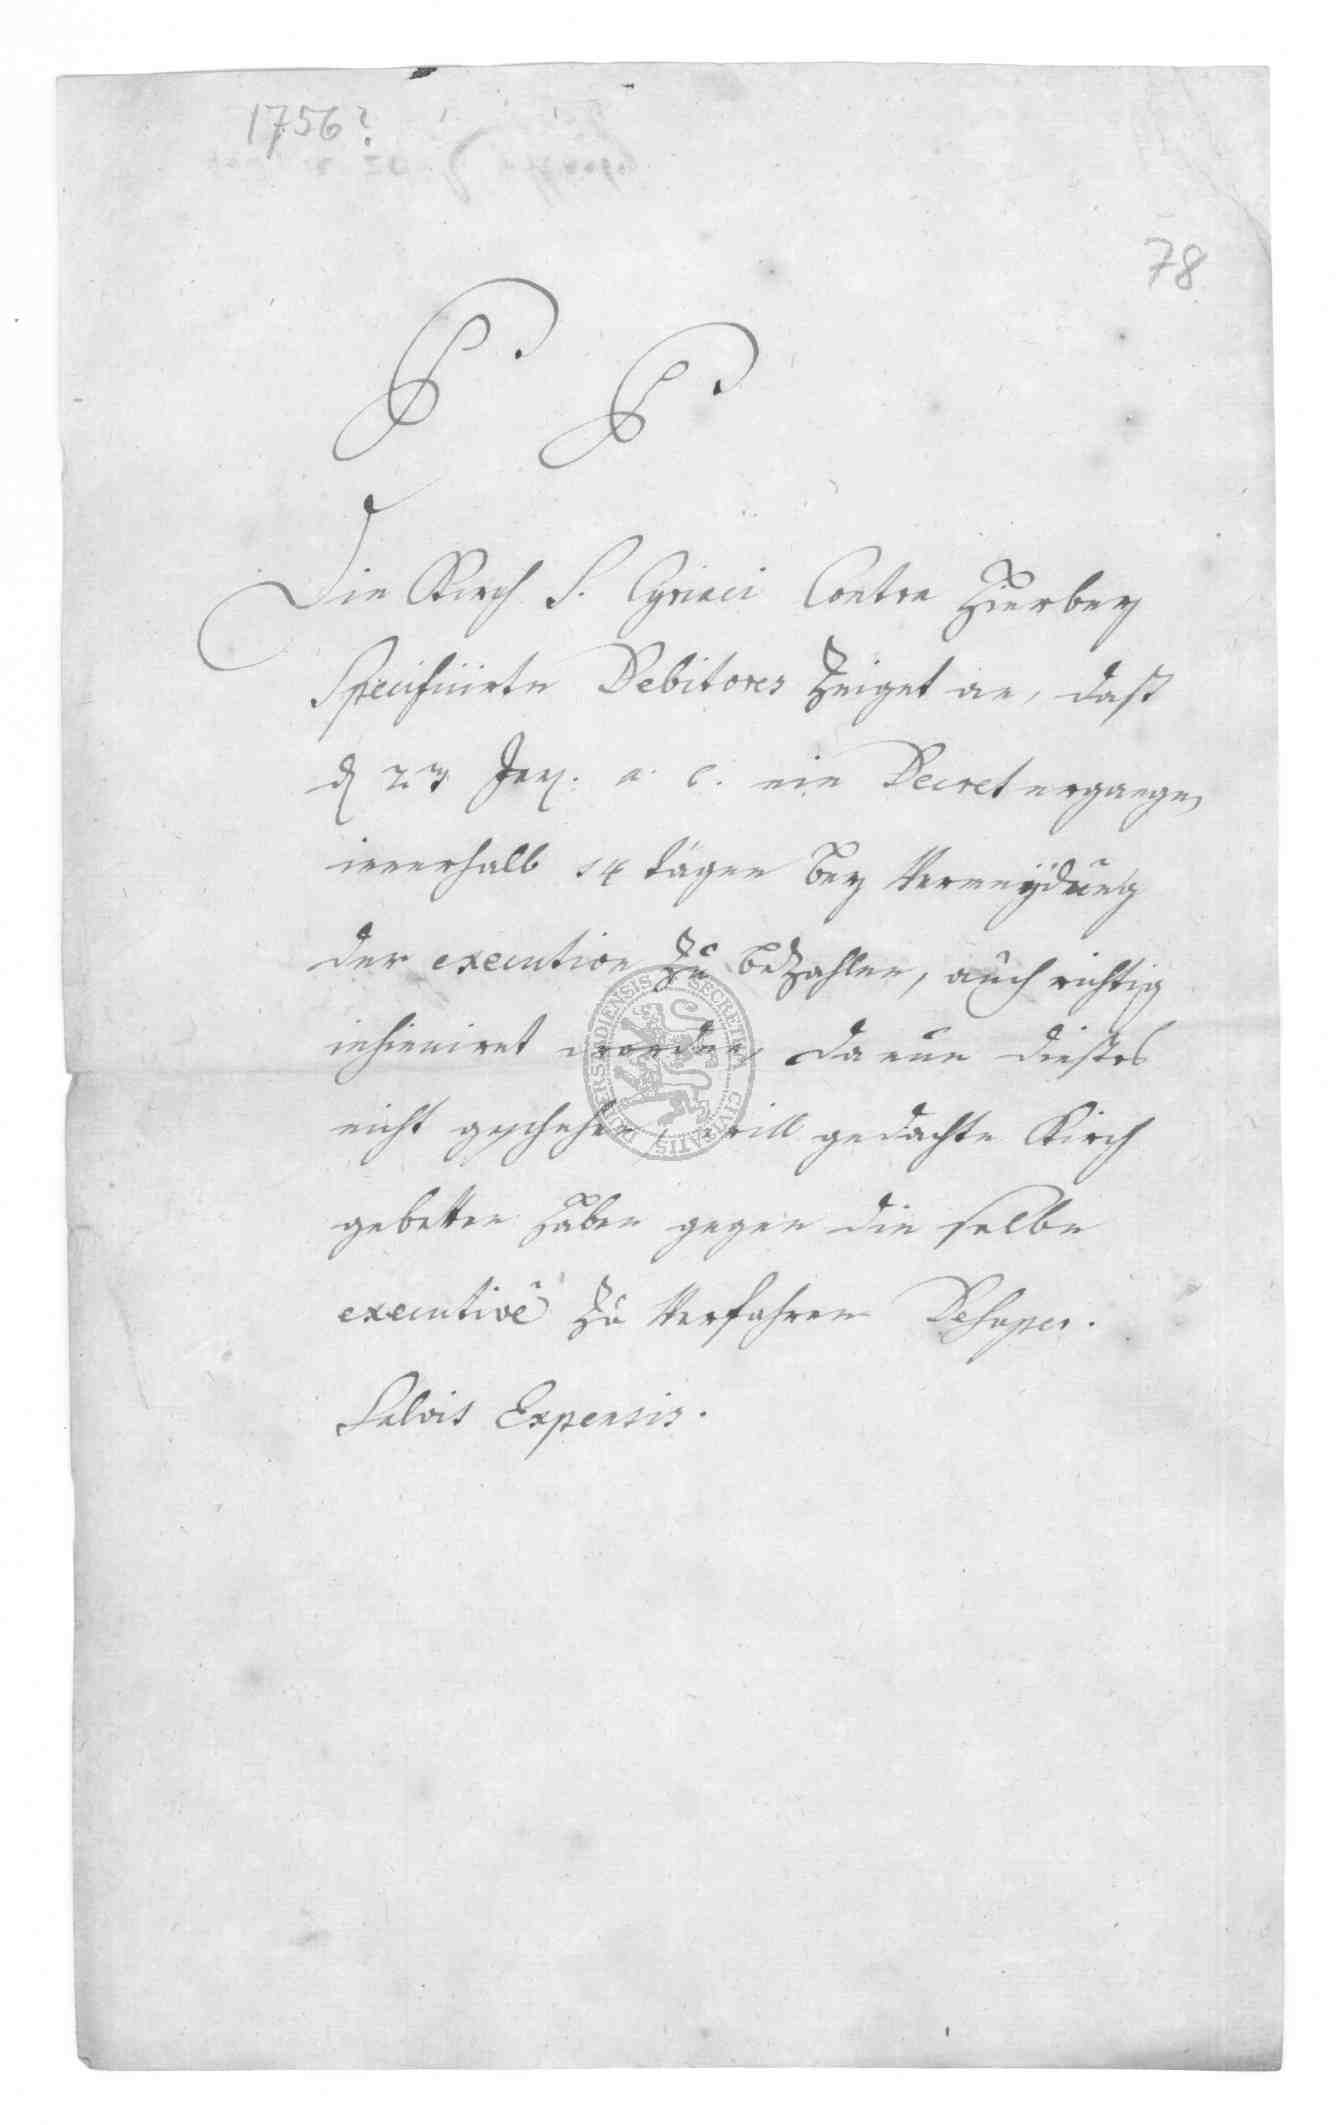 1756?
78
P. P.
Die Kirch S. Cyriaci Contra hierbey
Specificirte Debitores zeiget an, daß
d 23 Jan: a. c. ein Decret ergangen,
innerhalb 14 tägen bey Vermeydung
der execution zu bezahlen, auch richtig
insinuiret worden, da nun dießes
nicht geschehen, will gedachte Kirch
gebetten haben gegen die selbe
executivè zu Verfahren Desuper.
Salvis Expensis.
DUDERSTADIENSIS SECRETUM CIVITATIS